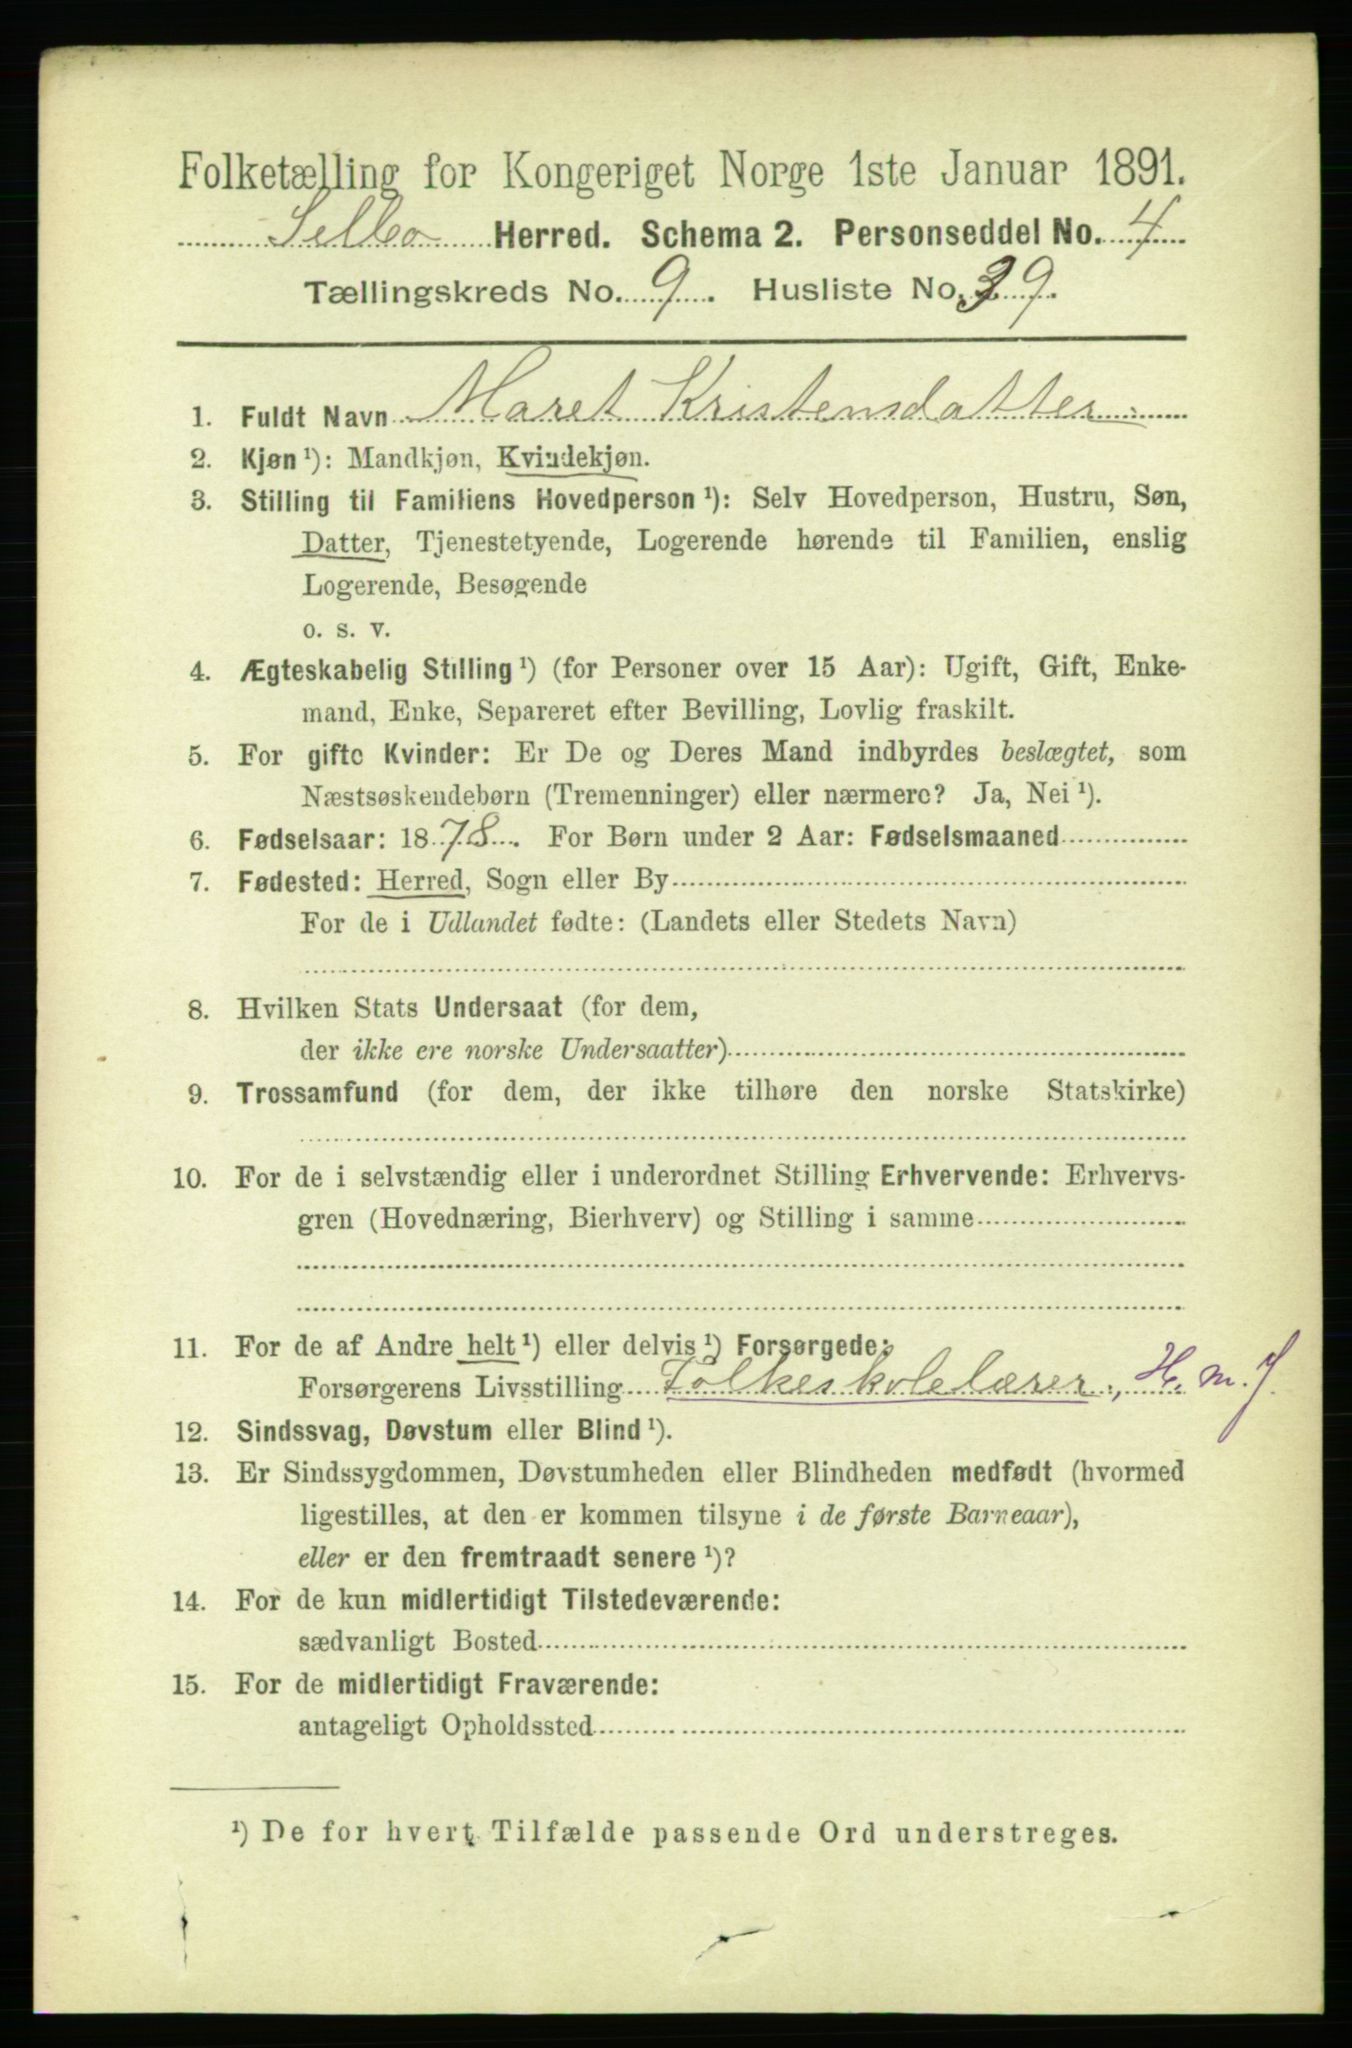 Folketælling for Kongeriget Norge 1ste Januar 1891.
Selbo Herred. Schema 2. Personseddel No. 4
Tællingskreds No. 9. Husliste No. 39.
1. Fuldt Navn Maret Kristensdatter
2. Kjøn ¹): Mandkjøn, Kvindekjøn.
3. Stilling til Familiens Hovedperson ¹): Selv Hovedperson, Hustru, Søn,
Datter, Tjenestetyende, Logerende hørende til Familien, enslig
Logerende, Besøgende
o. s. v.
4. Ægteskabelig Stilling ¹) (for Personer over 15 Aar): Ugift, Gift, Enke-
mand, Enke, Separeret efter Bevilling, Lovlig fraskilt.
5. For gifte Kvinder: Er De og Deres Mand indbyrdes beslægtet, som
Næstsøskendebørn (Tremenninger) eller nærmere? Ja, Nei ¹).
6. Fødselsaar: 1878. For Børn under 2 Aar: Fødselsmaaned
7. Fødested: Herred, Sogn eller By
For de i Udlandet fødte: (Landets eller Stedets Navn)
8. Hvilken Stats Undersaat (for dem,
der ikke ere norske Undersaatter)
9. Trossamfund (for dem, der ikke tilhøre den norske Statskirke)
10. For de i selvstændig eller i underordnet Stilling Erhvervende: Erhvervs-
gren (Hovednæring, Bierhverv) og Stilling i samme
11. For de af Andre helt ¹) eller delvis ¹) Forsørgede:
Forsørgerens Livsstilling Folkeskolelærer, H. m. J.
12. Sindssvag, Døvstum eller Blind ¹).
13. Er Sindssygdommen, Døvstumheden eller Blindheden medfødt (hvormed
ligestilles, at den er kommen tilsyne i de første Barneaar),
eller er den fremtraadt senere ¹)?
14. For de kun midlertidigt Tilstedeværende:
sædvanligt Bosted
15. For de midlertidigt Fraværende:
antageligt Opholdssted
¹) De for hvert Tilfælde passende Ord understreges.